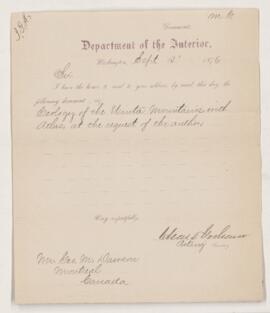 Document.
Department of the Interior,
Washington, Sept 12 1876
Sir,
I have the honor to send to your address, by mail this day, the
following document, viz:
Geology of the Uinta Mountains with
Atlas, at the request of the author
Very respectfully,
Acting
Mr. Geo. M. Dawson
Montreal
Canada